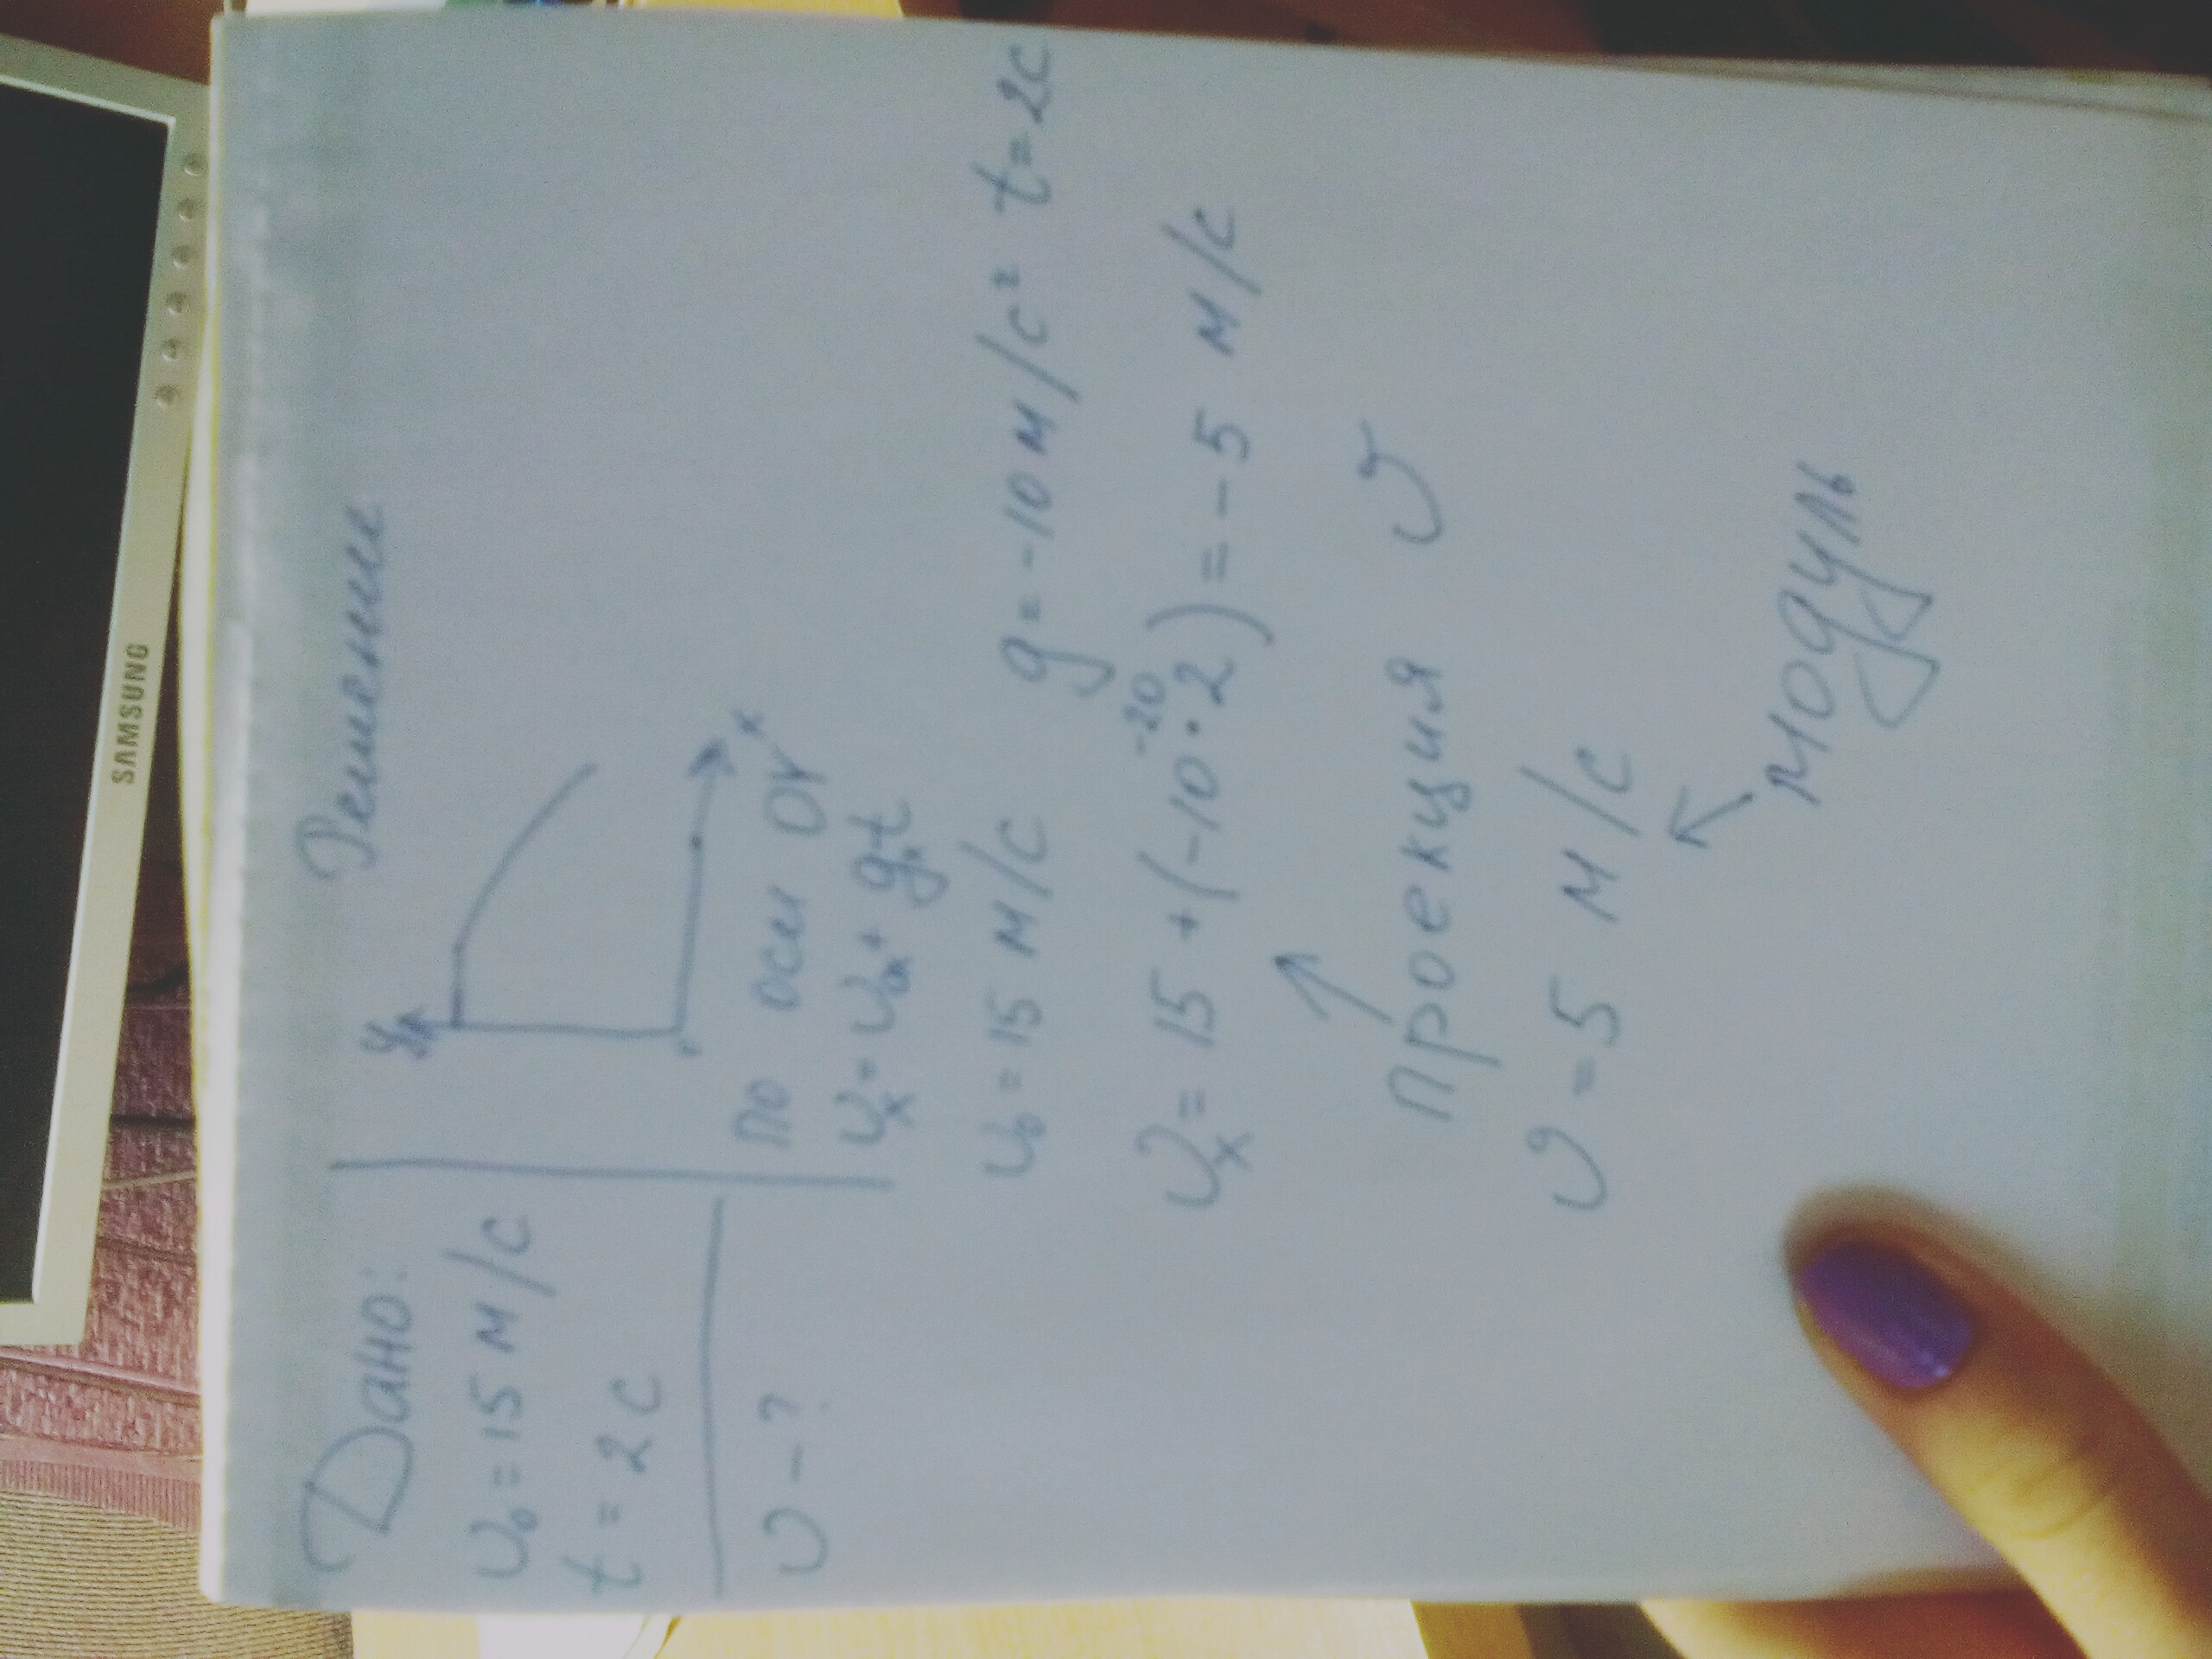 SAMSUNG
Дано:
υ₀ = 15 м/с
t = 2 с
υ - ?
Решение
y
x
по оси OY
υₓ = υ₀ₓ + gₓt
υ₀ = 15 м/с g = -10 м/с² t = 2с
-20
υₓ = 15 + (-10 · 2) = - 5 м/с
проекция υ
υ = 5 м/с
модуль